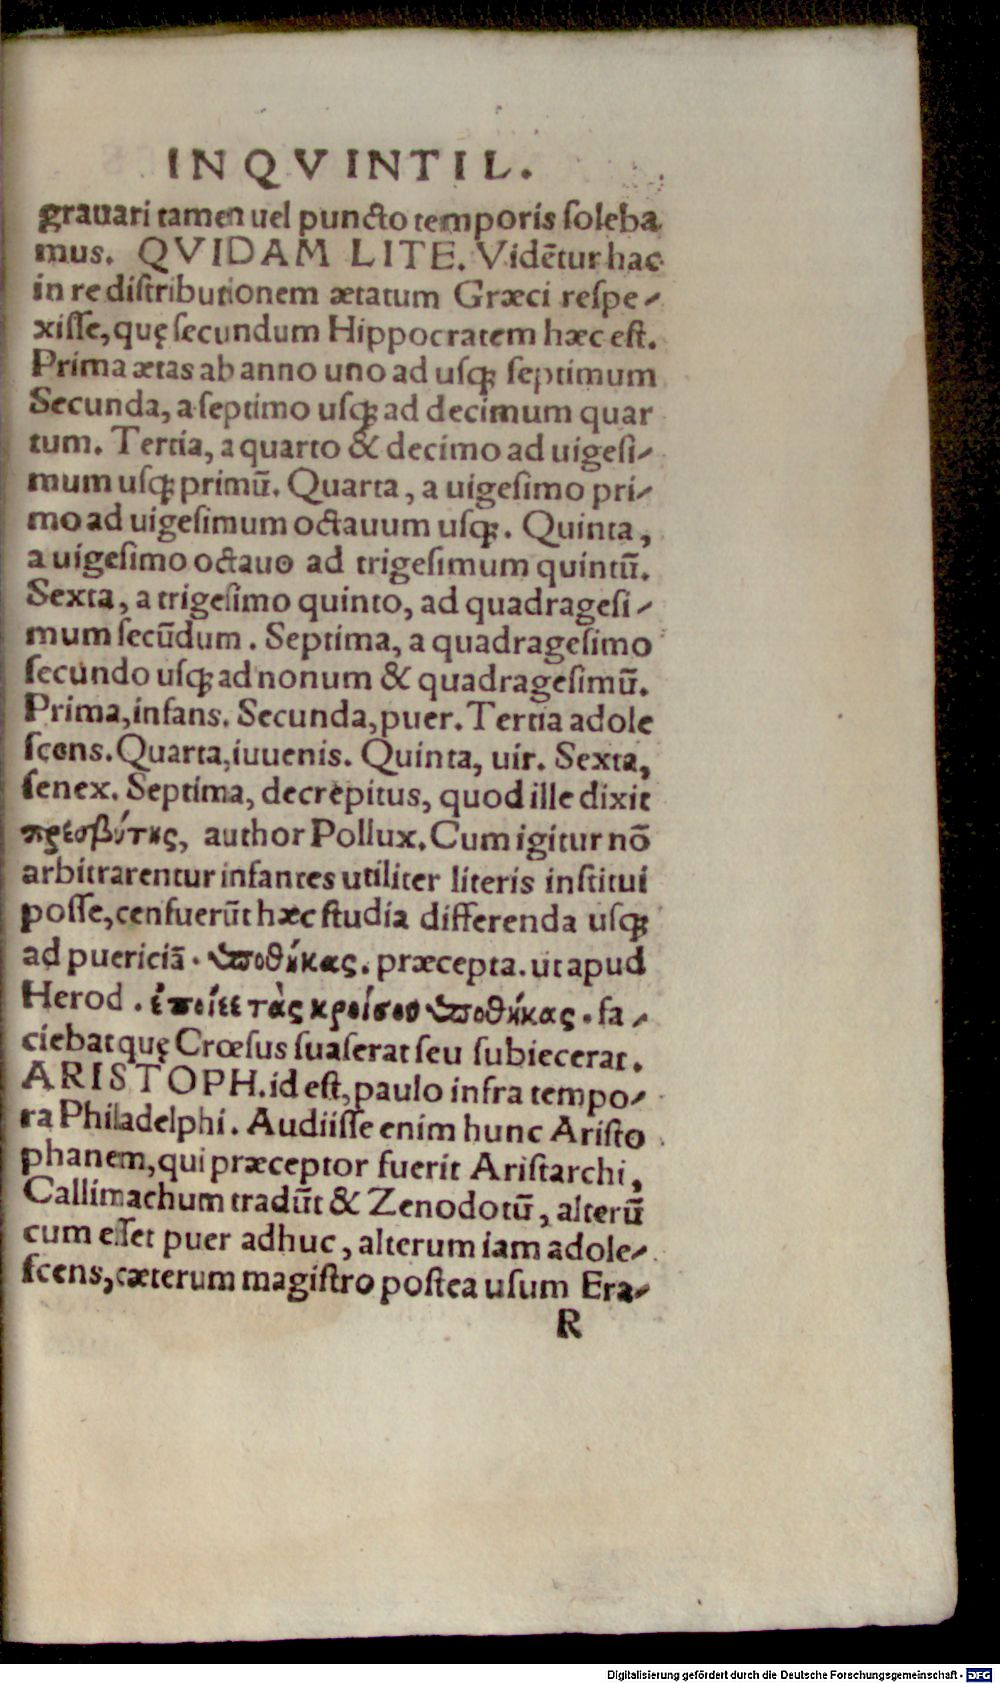 IN QVINTIL.
grauari tamen uel puncto temporis soleba
mus. QVIDAM LITE. Vidētur hac
in re distributionem ætatum Græci respe-
xisse, quę secundum Hippocratem hæc est.
Prima ætas ab anno uno ad usq; septimum
Secunda, a septimo usq; ad decimum quar
tum. Tertia, a quarto & decimo ad uigesi-
mum usq; primū. Quarta, a uigesimo pri-
mo ad uigesimum octauum usq;. Quinta,
a uigesimo octauo ad trigesimum quintū.
Sexta, a trigesimo quinto, ad quadragesi-
mum secūdum. Septima, a quadragesimo
secundo usq; ad nonum & quadragesimū.
Prima, infans. Secunda, puer. Tertia adole
scens. Quarta, iuuenis. Quinta, uir. Sexta,
senex. Septima, decrepitus, quod ille dixit
πρεσβύτης, author Pollux. Cum igitur nō
arbitrarentur infantes utiliter literis institui
posse, censuerūt hæc studia differenda usq;
ad puericiā. ὑποθήκας. præcepta. ut apud
Herod. ἐποίεε τὰς κροίσου ὑποθήκας. fa-
ciebat quę Crœsus suaserat seu subiecerat.
ARISTOPH. id est, paulo infra tempo-
ra Philadelphi. Audiisse enim hunc Aristo
phanem, qui præceptor fuerit Aristarchi,
Callimachum tradūt & Zenodotū, alterū
cum esset puer adhuc, alterum iam adole-
scens, cæterum magistro postea usum Era-
R
Digitalisierung gefördert durch die Deutsche Forschungsgemeinschaft - DFG